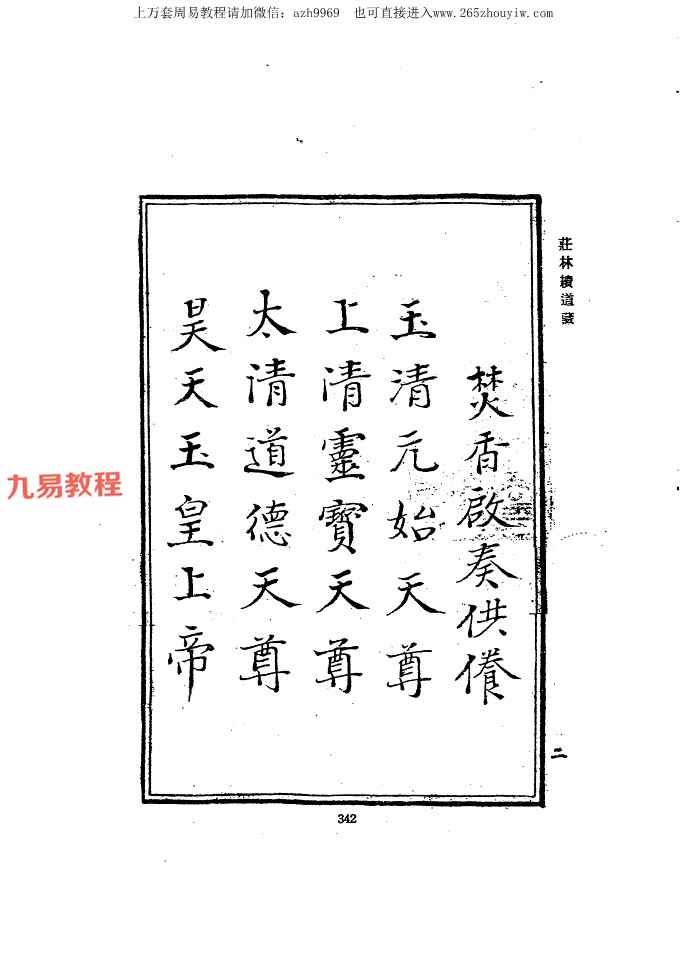 上万套周易教程请加微信：azh9969 也可直接进入www.265zhouyiw.com
莊林續道藏
焚香啟奏供養
玉清元始天尊
上清靈寶天尊
太清道德天尊
昊天玉皇上帝
九易教程
二
342